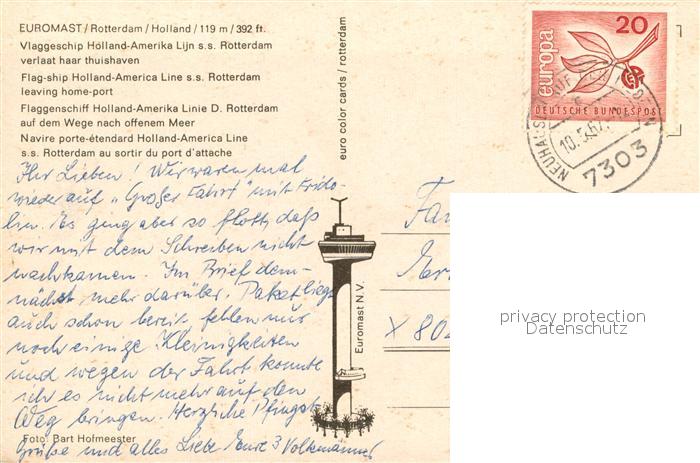 EUROMAST / Rotterdam / Holland / 119 m / 392 ft.
Vlaggeschip Holland-Amerika Lijn s.s. Rotterdam
verlaat haar thuishaven
Flag-ship Holland-America Line s.s. Rotterdam
leaving home-port
Flaggenschiff Holland-Amerika Linie D. Rotterdam
auf dem Wege nach offenem Meer
Navire porte-étendard Holland-America Line
s.s. Rotterdam au sortir du port d'attache
euro color cards / rotterdam
20
europa
DEUTSCHE BUNDESPOST
10.5.67
7303
Ihr Lieben! Wir waren mal
wieder auf „Großer Fahrt" mit Frido-
lin. Es ging aber so flott, daß
wir mit dem Schreiben nicht
nachkamen. Im Brief dem-
nächst mehr darüber. Paket liegt
auch schon bereit, fehlen nur
noch einige Kleinigkeiten
und wegen der Fahrt konnte
ich es nicht mehr auf den
Weg bringen. Herzliche Pfingst-
Grüße und alles Liebe Eure 3 Volkmänner
Foto: Bart Hofmeester
Euromast N.V.
Fam
X 802
privacy protection
Datenschutz